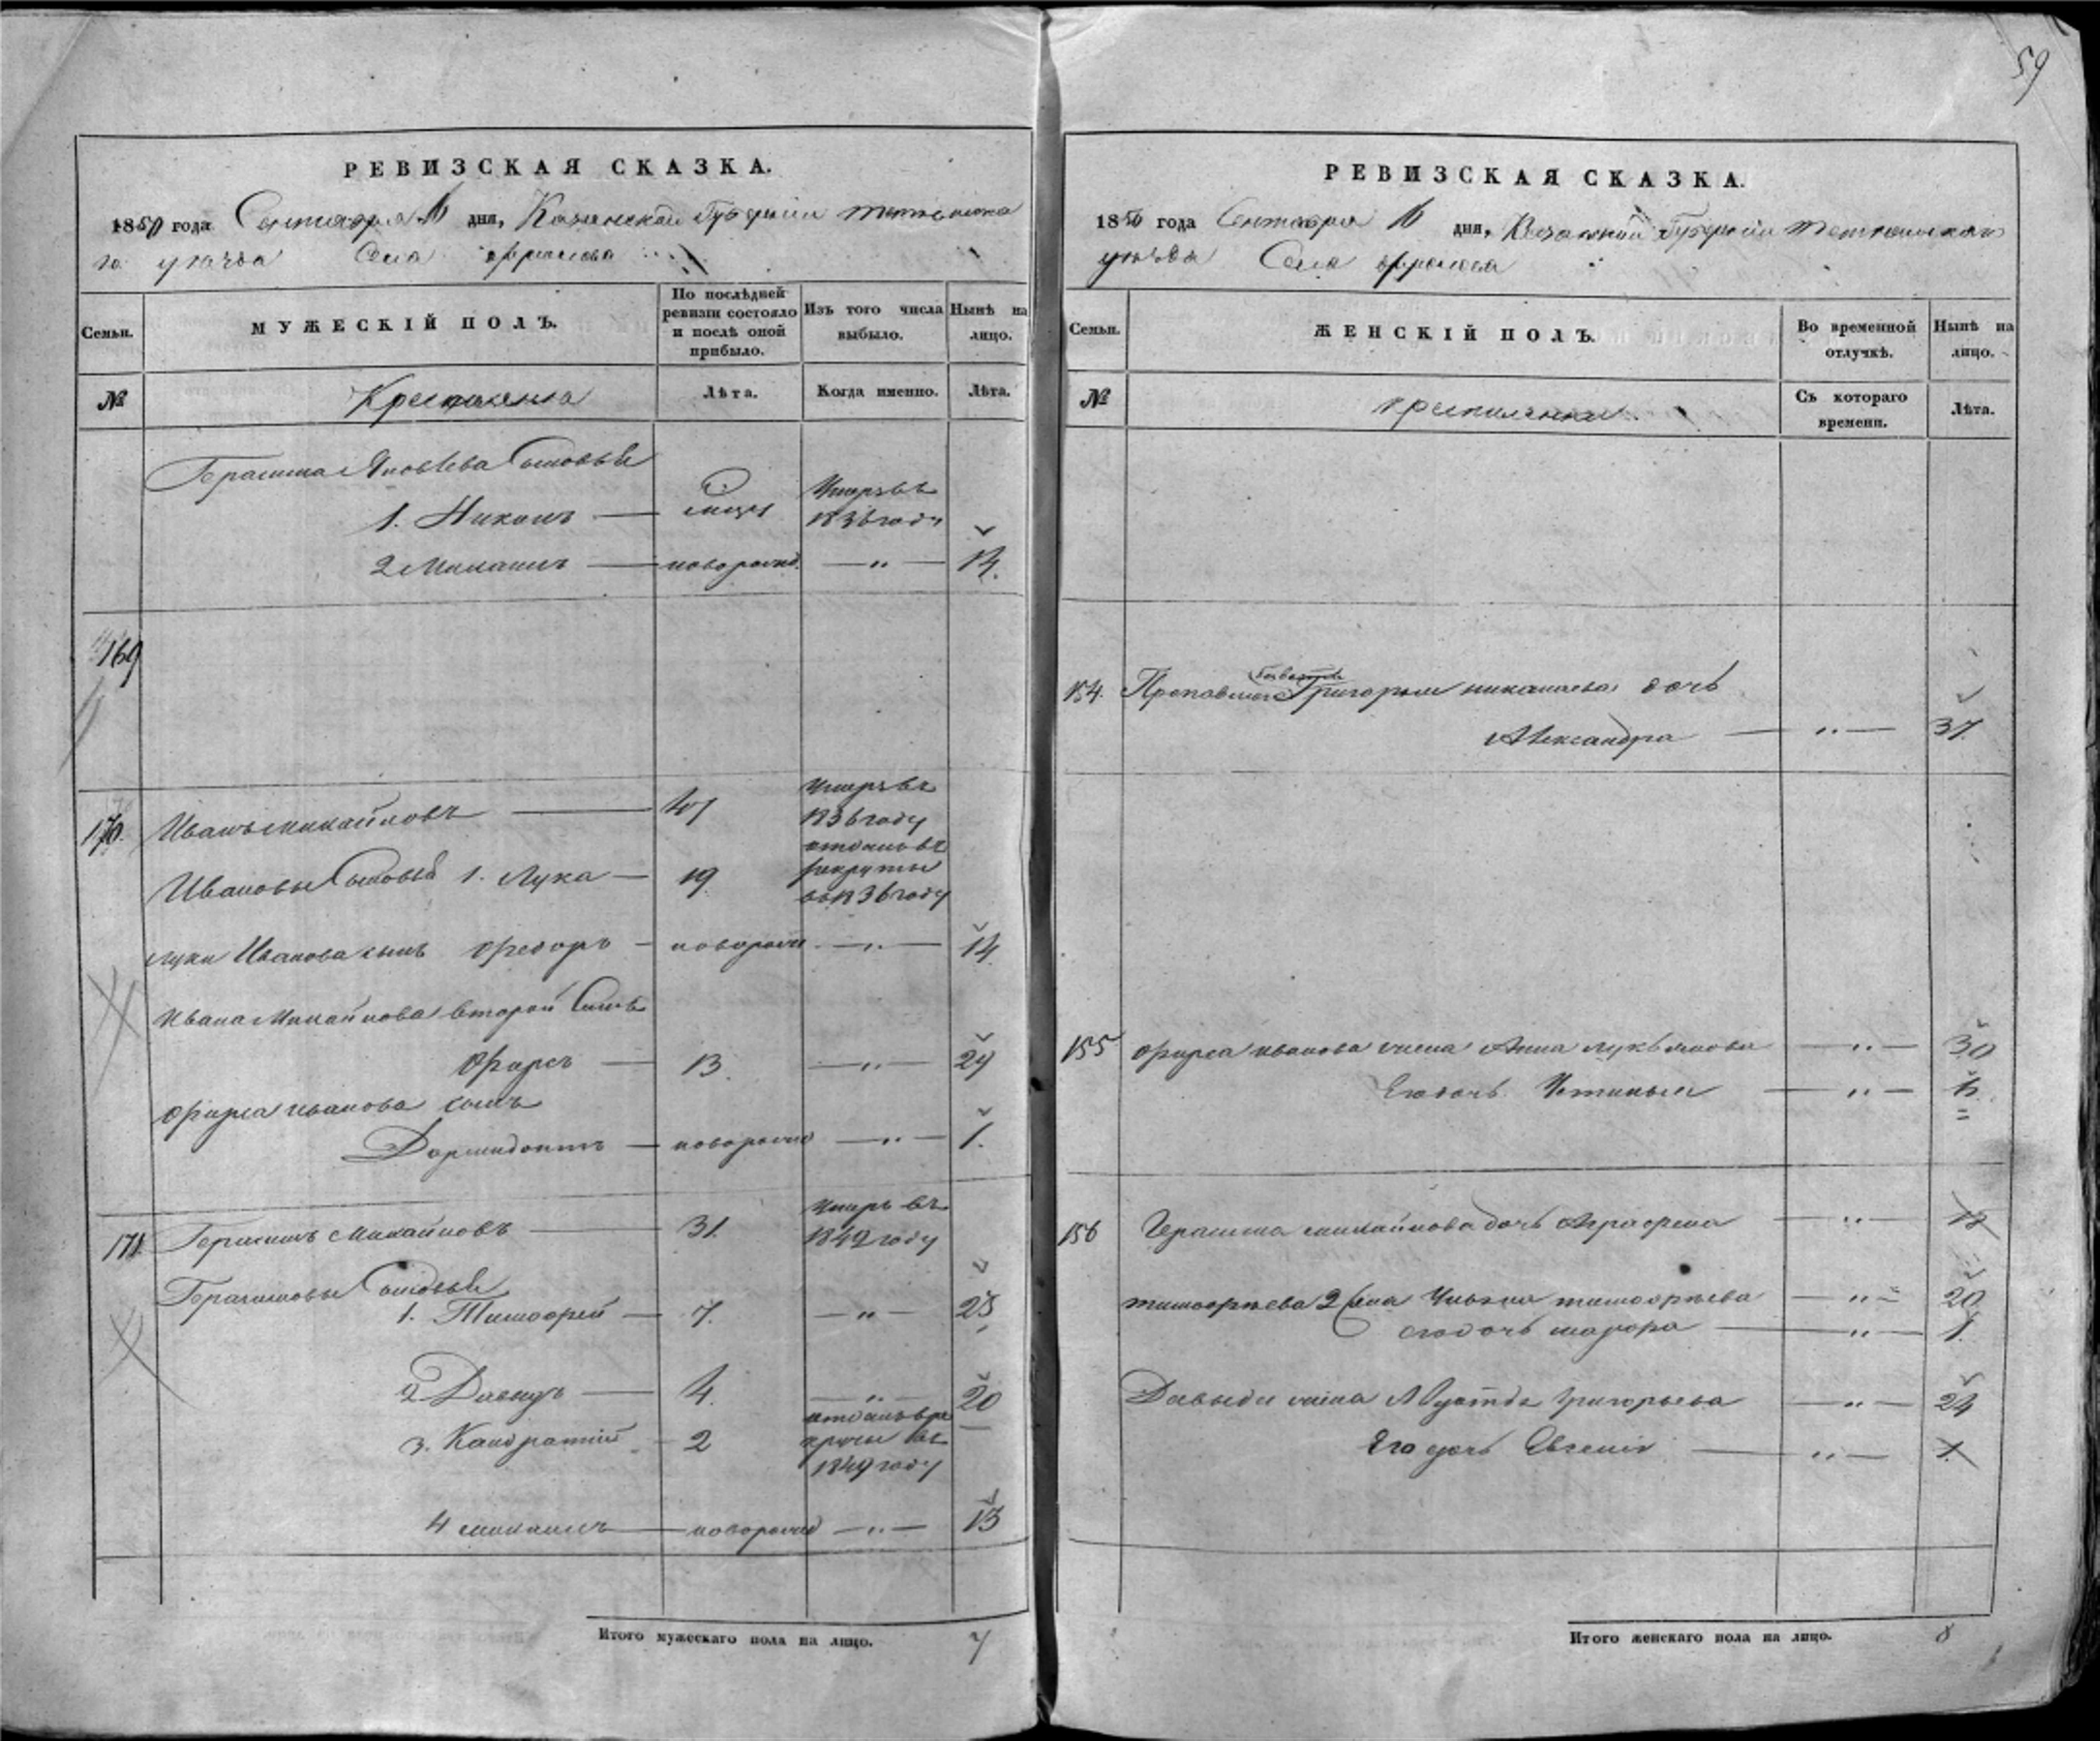 59
РЕВИЗСКАЯ СКАЗКА.
1850 года Сентября 16 дня, Казанской Губернии Тетюшска
го уезда Села Фролова
Семьи.
МУЖЕСКІЙ ПОЛЪ.
По послѣдней ревизіи состояло и послѣ оной прибыло.
Изъ того числа выбыло.
Нынѣ на лицо.
№
Крестьяне
Лѣта.
Когда именно.
Лѣта.
Герасима Яковлева Сыновья
1. Никонъ — Умеръ въ 1836 году
2 — новорожд. — „ — 14.
169
170. Иванъ Михайловъ — 47 Умеръ въ 1836 году
Ивановы Сыновья 1. Лука — 19. отданъ въ рекруты въ 1836 году
Луки Иванова сынъ Федоръ — новорожд — „ — 14
Ивана Михайлова второй Сынъ
Фирсъ — 13. — „ — 29
Фирса Иванова сынъ
Дормидонтъ — новорожд — „ — 1.
171. Герасимъ Михайловъ — 31. Умеръ въ 1842 году
Герасимовы Сыновья
1. Тимофей — 7. — „ — 23
2 Давыдъ — 4. — „ — 20
3. Кандратій — 2 отданъ въ ре круты въ 1849 году —
4 — новорожд — „ — 13
Итого мужескаго пола на лицо. 7
РЕВИЗСКАЯ СКАЗКА.
1850 года Сентября 16 дня, Казанской Губернии Тетюшскаго
уезда Села Фролова
Семьи.
ЖЕНСКІЙ ПОЛЪ.
Во временной отлучкѣ.
Нынѣ на лицо.
№
Крестьянки.
Съ котораго времени.
Лѣта.
154. Григорья дочь
Александра — „ — 37
155 Фирса Иванова жена Анна Лукьянова — „ — 30
Его дочь Устинья — „ — 6.
156 Герасима Михайлова дочь Аграфена — „ — 18
Тимофеева 2 жена Тимофеева — „ — 20
его дочь — „ — 1.
Давыда жена Григорьева — „ — 24
Его дочь Евгенія — „ — 1.
Итого женскаго пола на лицо. 8